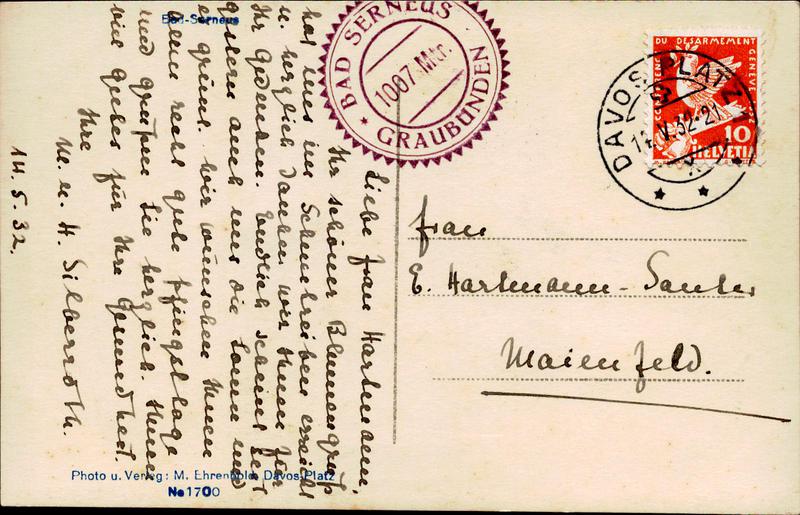 Bad-Serneus
BAD SERNEUS
1007 Mtr.
GRAUBÜNDEN
CONFERENCE DU DESARMEMENT GENEVE 1932
10
HELVETIA
DAVOS-PLATZ 1
14.V.32-21
Liebe Frau Hartmann,
Ihr schöner Blumengruß
hat uns im Schneetreiben erreicht
u. herzlich danken wir Ihnen für
Ihr Gedenken. Endlich scheint seit
gestern auch uns die Sonne und
es grünt. Wir wünschen Ihnen
allen recht gute Pfingsttage
und grüßen Sie herzlich. Ihnen
viel gutes für Ihre Gesundheit.
Ihre
M. u. H. Silberroth.
14.5.32.
Frau
E. Hartmann-Sauter
Maienfeld.
Photo u. Verlag: M. Ehrenbold, Davos-Platz
No 1700